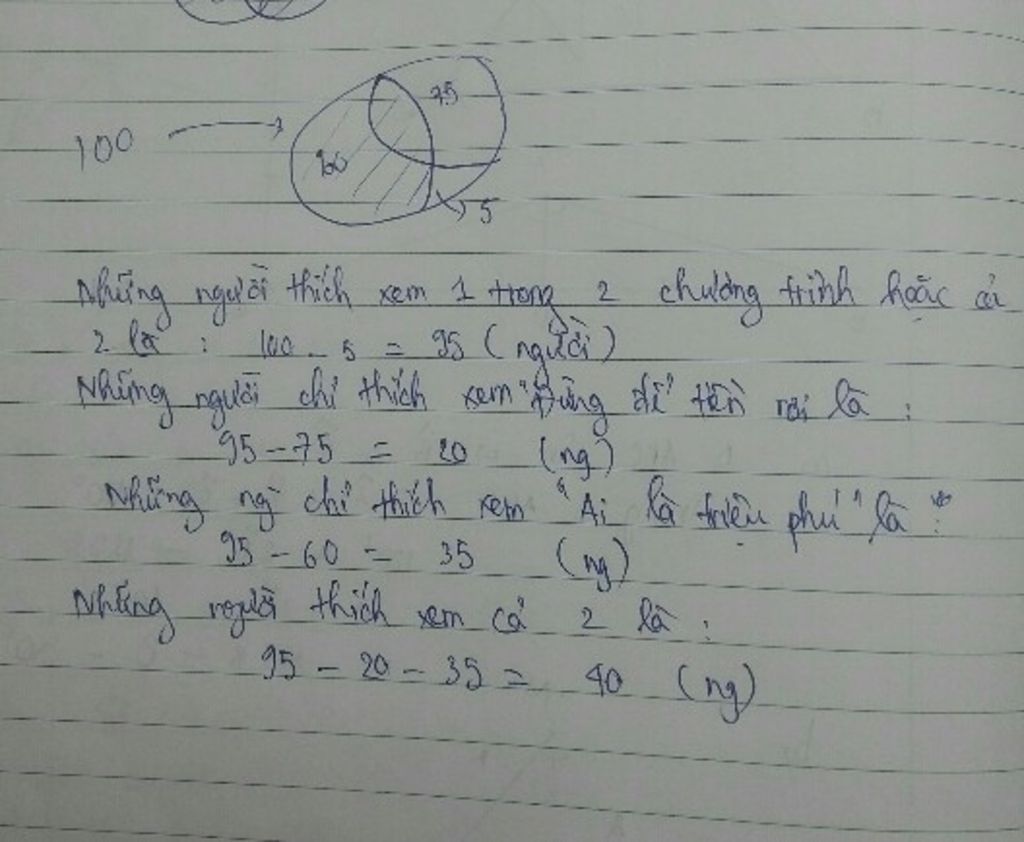 75
100
60
5
Những người thích xem 1 trong 2 chương trình hoặc cả
2 là : 100 - 5 = 95 (người)
Những người chỉ thích xem "Đừng để tiền rơi là :
95 - 75 = 20 (ng)
Những ng` chỉ thích xem "Ai là triệu phú" là :
95 - 60 = 35 (ng)
Những người thích xem cả 2 là :
95 - 20 - 35 = 40 (ng)